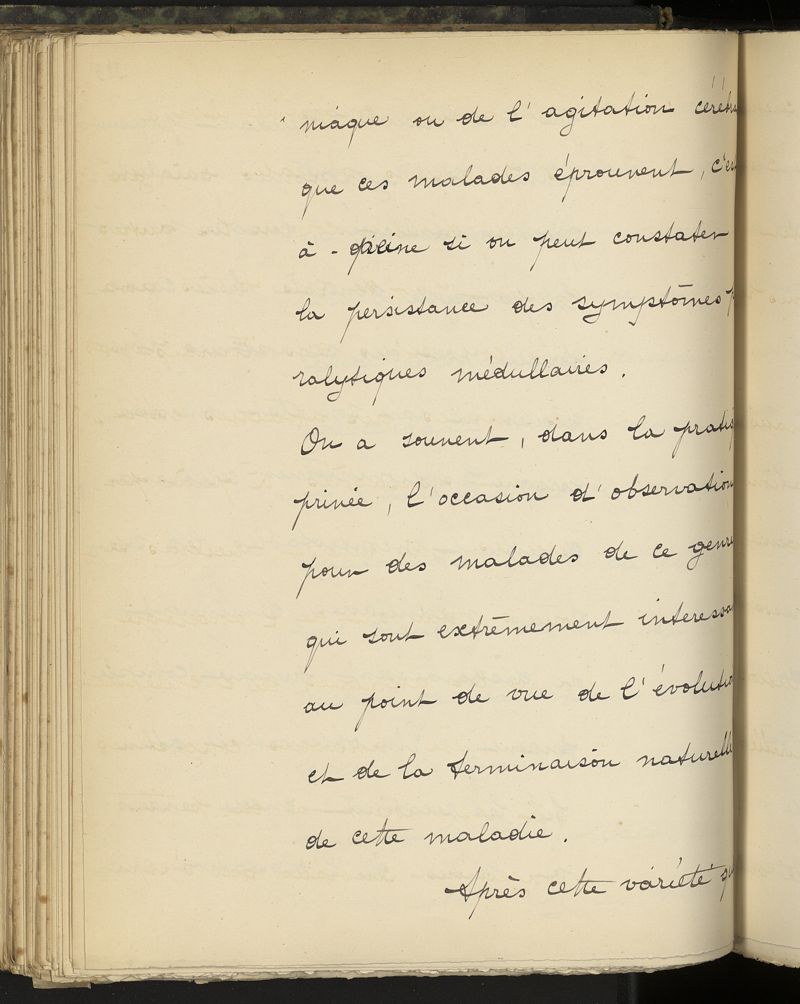 niaque ou de l'agitation
que ces malades éprouvent, c'es
à-peine si on peut constater
la persistance des symptômes p
ralytiques médullaires.
On a souvent, dans la pratiq
privée, l'occasion d'observation
pour des malades de ce genre
qui sont extrêmement interessa
au point de vue de l'évolutio
et de la terminaison naturelle
de cette maladie.
Après cette variété qu